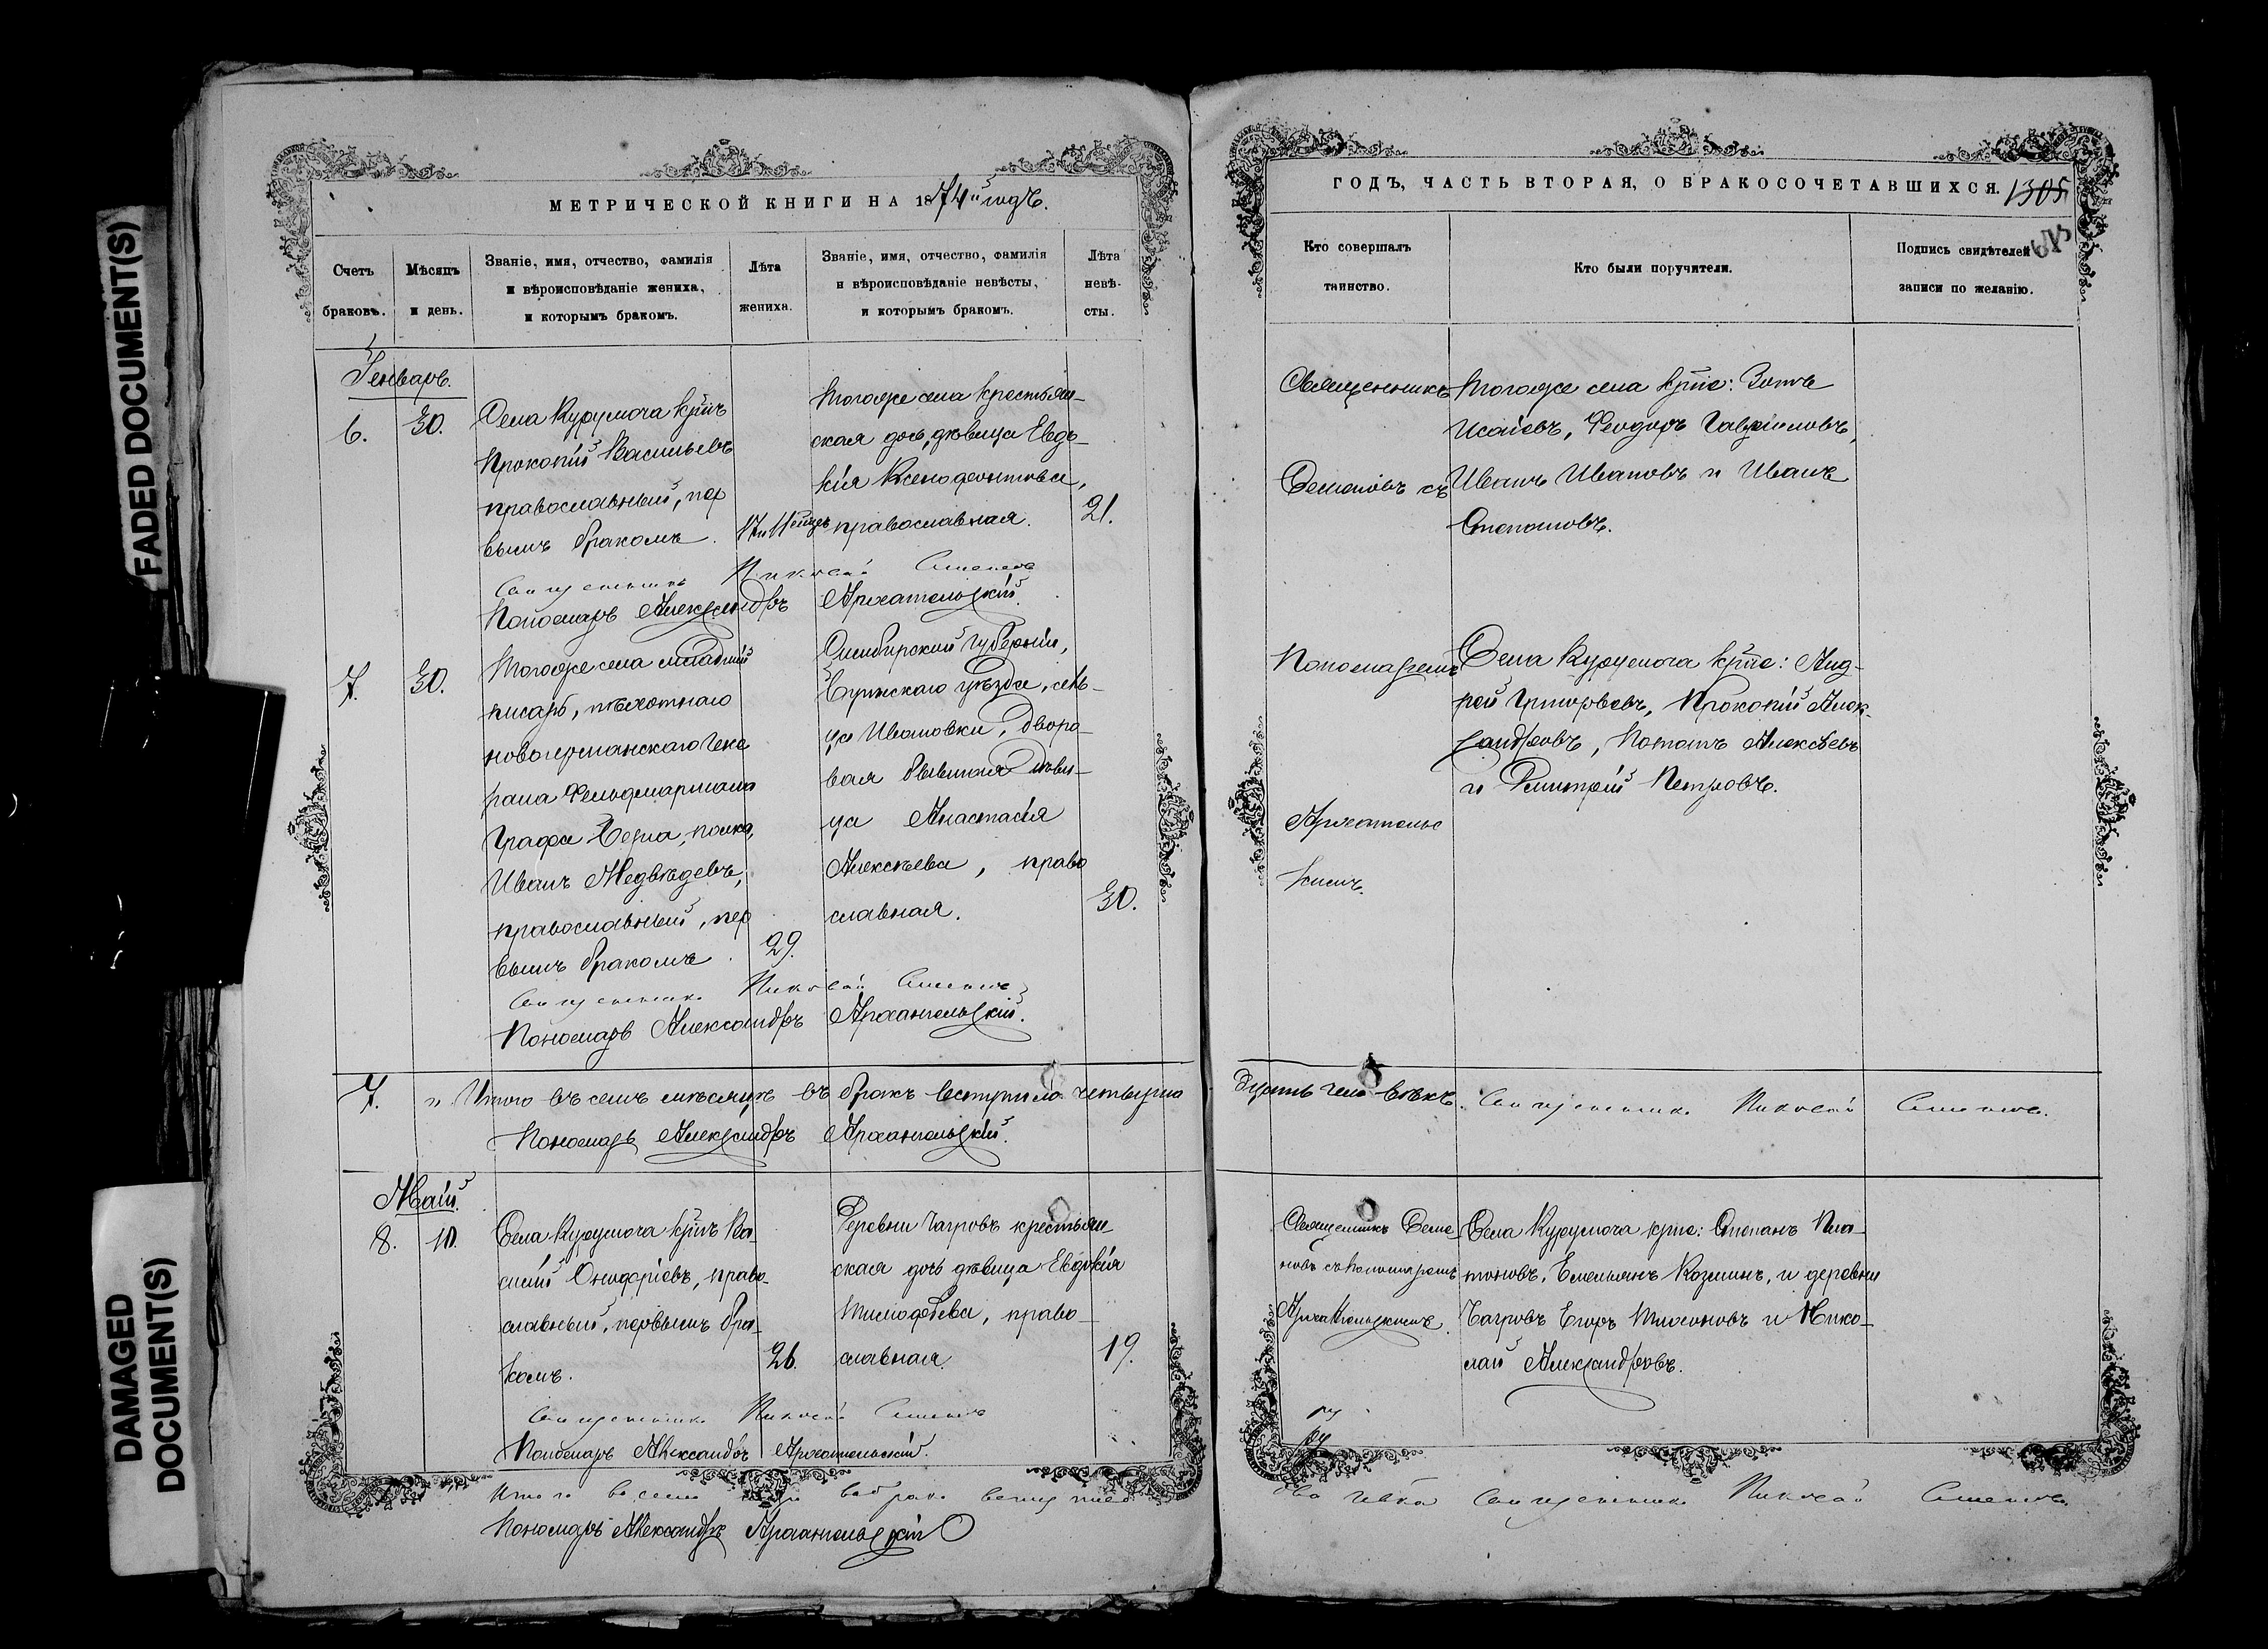 МЕТРИЧЕСКОЙ КНИГИ НА 1874й годъ.
Счетъ браковъ.
Мѣсяцъ и день.
Званіе, имя, отчество, фамилія
и вѣроисповѣданіе жениха,
и которымъ бракомъ.
Лѣта жениха.
Званіе, имя, отчество, фамилія
и вѣроисповѣданіе невѣсты,
и которымъ бракомъ.
Лѣта невѣ-
сты.
Генварь.
6.
30.
Села Курумоча кр̃нъ
Прокопій Васильевъ
православный, пер
вымъ бракомъ.
17 и 11 мѣсяц
Тогоже села крестьян-
ская дочь, дѣвица Евдо-
кія Ксенофонтова,
православная.
21.
Священникъ Николай Семеновъ
Пономарь Александръ Архангельскій.
7.
30.
Тогоже села младшій
писарь, пѣхотнаго
новогерманскаго Гене
рала Фельдмаршала
Графа Берга, полка,
Иванъ Медвѣдевъ,
православный, пер
вымъ бракомъ.
29.
Симбирской губерніи,
уѣзда, сель-
ца Ивановки, дворо-
вая бывшая дѣви-
ца Анастасія
Алексѣева, право
славная.
30.
Священникъ Николай Семеновъ
Пономарь Александръ Архангельскій.
7. " Итого въ семъ мѣсяцѣ въ бракъ вступило четырна
Пономарь Александръ Архангельскій.
Май.
8.
10.
Села Курумоча кр̃нъ Ва-
силій Онофріевъ, право-
славный, первымъ бра-
комъ.
26.
Деревни Чагровъ крестьян-
ская дочь дѣвица Евдокія
Тимофѣева, право-
славная.
19.
Священникъ Николай Семеновъ
Пономарь Александръ Архангельскій.
Итого въ семъ въ бракъ вступило
Пономарь Александръ Архангельскій
ГОДЪ, ЧАСТЬ ВТОРАЯ, О БРАКОСОЧЕТАВШИХСЯ. 1305
Кто совершалъ
таинство.
Кто были поручители.
Подпись свидѣтелей
записи по желанію.
Священникъ
Семеновъ съ
Тогоже села кр̃не: Зотъ
Исаіевъ, Феодоръ Гавриловъ,
Иванъ Ивановъ и Иванъ
Степановъ.
Пономаремъ
Архангельс
кимъ.
Села Курумоча кр̃не: Анд-
рей Григорьевъ, Прокопій Алек-
сандровъ, Потапъ Алексѣевъ
и Димитрій Петровъ.
дцать человѣкъ. Священникъ Николай Семеновъ.
Священникъ Семе-
новъ съ пономаремъ
Архангельскимъ.
Села Курумоча кр̃не: Степанъ Пла-
тоновъ, Емельянъ Козминъ, и деревни
Чагровъ Егоръ Тихоновъ и Нико-
лай Александровъ.
два чел̃ка Священникъ Николай Семеновъ.
FADED DOCUMENT(S)
DAMAGED
DOCUMENT(S)